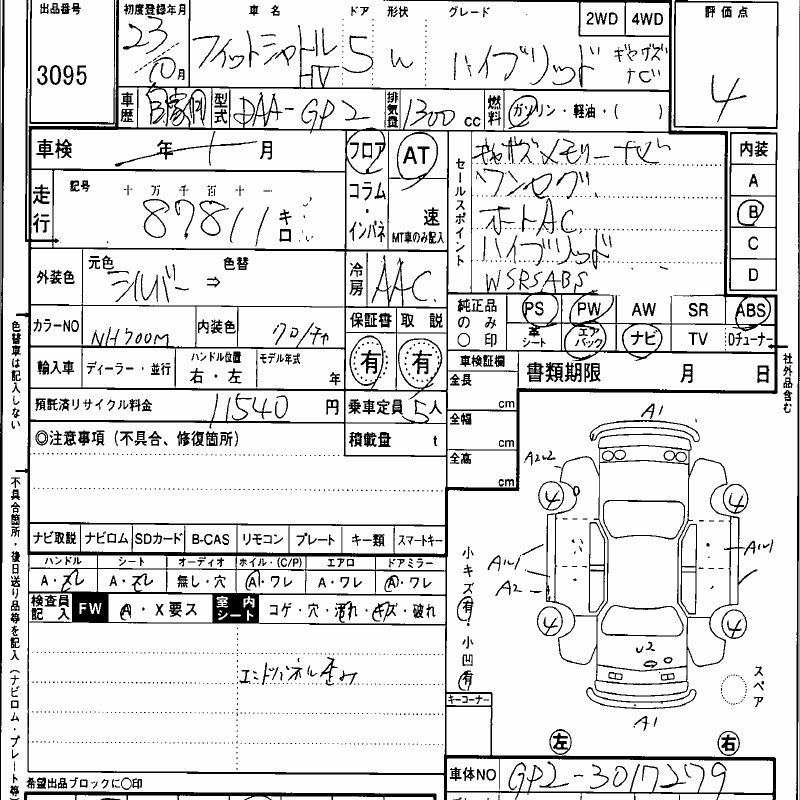 出品番号 初度登録年月 車名 ドア 形状 グレード 2WD 4WD 評価点
3095 23 10月 フィットシャトル HV 5 W ハイブリッド ギャザズナビ 4
車歴 自家用 型式 DAA-GP2 排気量 1300 cc 燃料 ガソリン・軽油・( )
車検 年 月 フロア AT セールスポイント ギャザズメモリーナビ 内装
走行 記号 十万千百十一 コラム・インパネ 速 ワンセグ A
87811 キロ MT車のみ記入 オートAC B
ハイブリッド C
外装色 元色 シルバー ⇒ 色替 冷房 AAC WSRSABS D
カラーNO NH700M 内装色 クロ/チャ 保証書 取説 純正品のみ〇印 PS PW AW SR ABS
有 有 革シート エアバック ナビ TV Dチューナー
輸入車 ディーラー・並行 ハンドル位置 右・左 モデル年式 年 車検証欄 書類期限 月 日
預託済リサイクル料金 11540 円 乗車定員 5人 全長 cm
◎注意事項(不具合、修復箇所) 積載量 t 全幅 cm
全高 cm
色替車は記入しない
社外品含む
不具合箇所・後日送り品等を記入(ナビロム・プレート等
ナビ取説 ナビロム SDカード B-CAS リモコン プレート キー類 スマートキー
ハンドル シート オーディオ ホイル・(C/P) エアロ ドアミラー
A・スレ A・スレ 無し・穴 A・ワレ A・ワレ A・ワレ
検査員記入 FW A・X要ス 室内シート コゲ・穴・汚れ・キズ・破れ
エンドパネル歪み
A1
A2U2
4 4
小キズ有・小凹有 A1U1 A1U1
A2
4 4
U2
スペア
A1
キーコーナー
左 右
希望出品ブロックに〇印 車体NO GP2-3017279